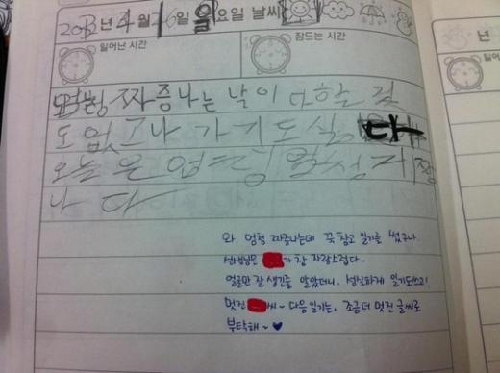 2013년 4월 16일 월요일 날씨
일어난 시간
잠드는 시간
엄청 짜증나는 날이다 할 것
도 없고 나 가기도 싫 다
오늘은 엄청 짜증
나다
와 엄청 짜증나는데 꾹 참고 일기를 썼구나
선생님은 가 참 자랑스럽다.
얼굴만 잘 생긴줄 알았더니, 성실하게 일기도쓰고!
멋진 씨~ 다음 일기는, 조금더 멋진 글씨로
부탁해~ ♥
년
일어난